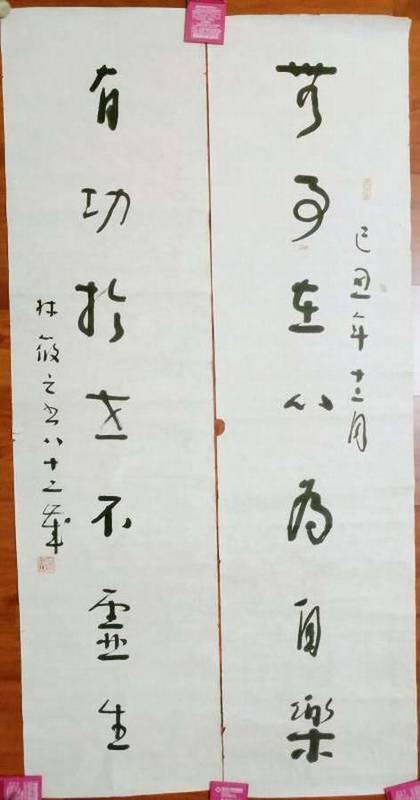 己丑年十二月
無事在心為自樂
有功於世不虛生
林筱之书八十二歲